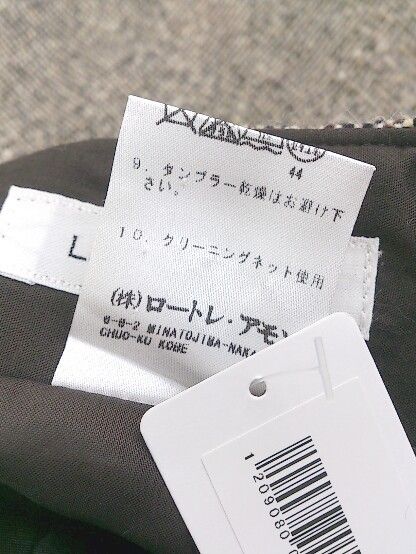 44
9. タンブラー乾燥はお避け下
さい。
L
10. クリーニングネット使用
(株)ロートレ・アモ
6-8-2 MINATOJIMA-NAKA
CHUO-KU KOBE
1209080